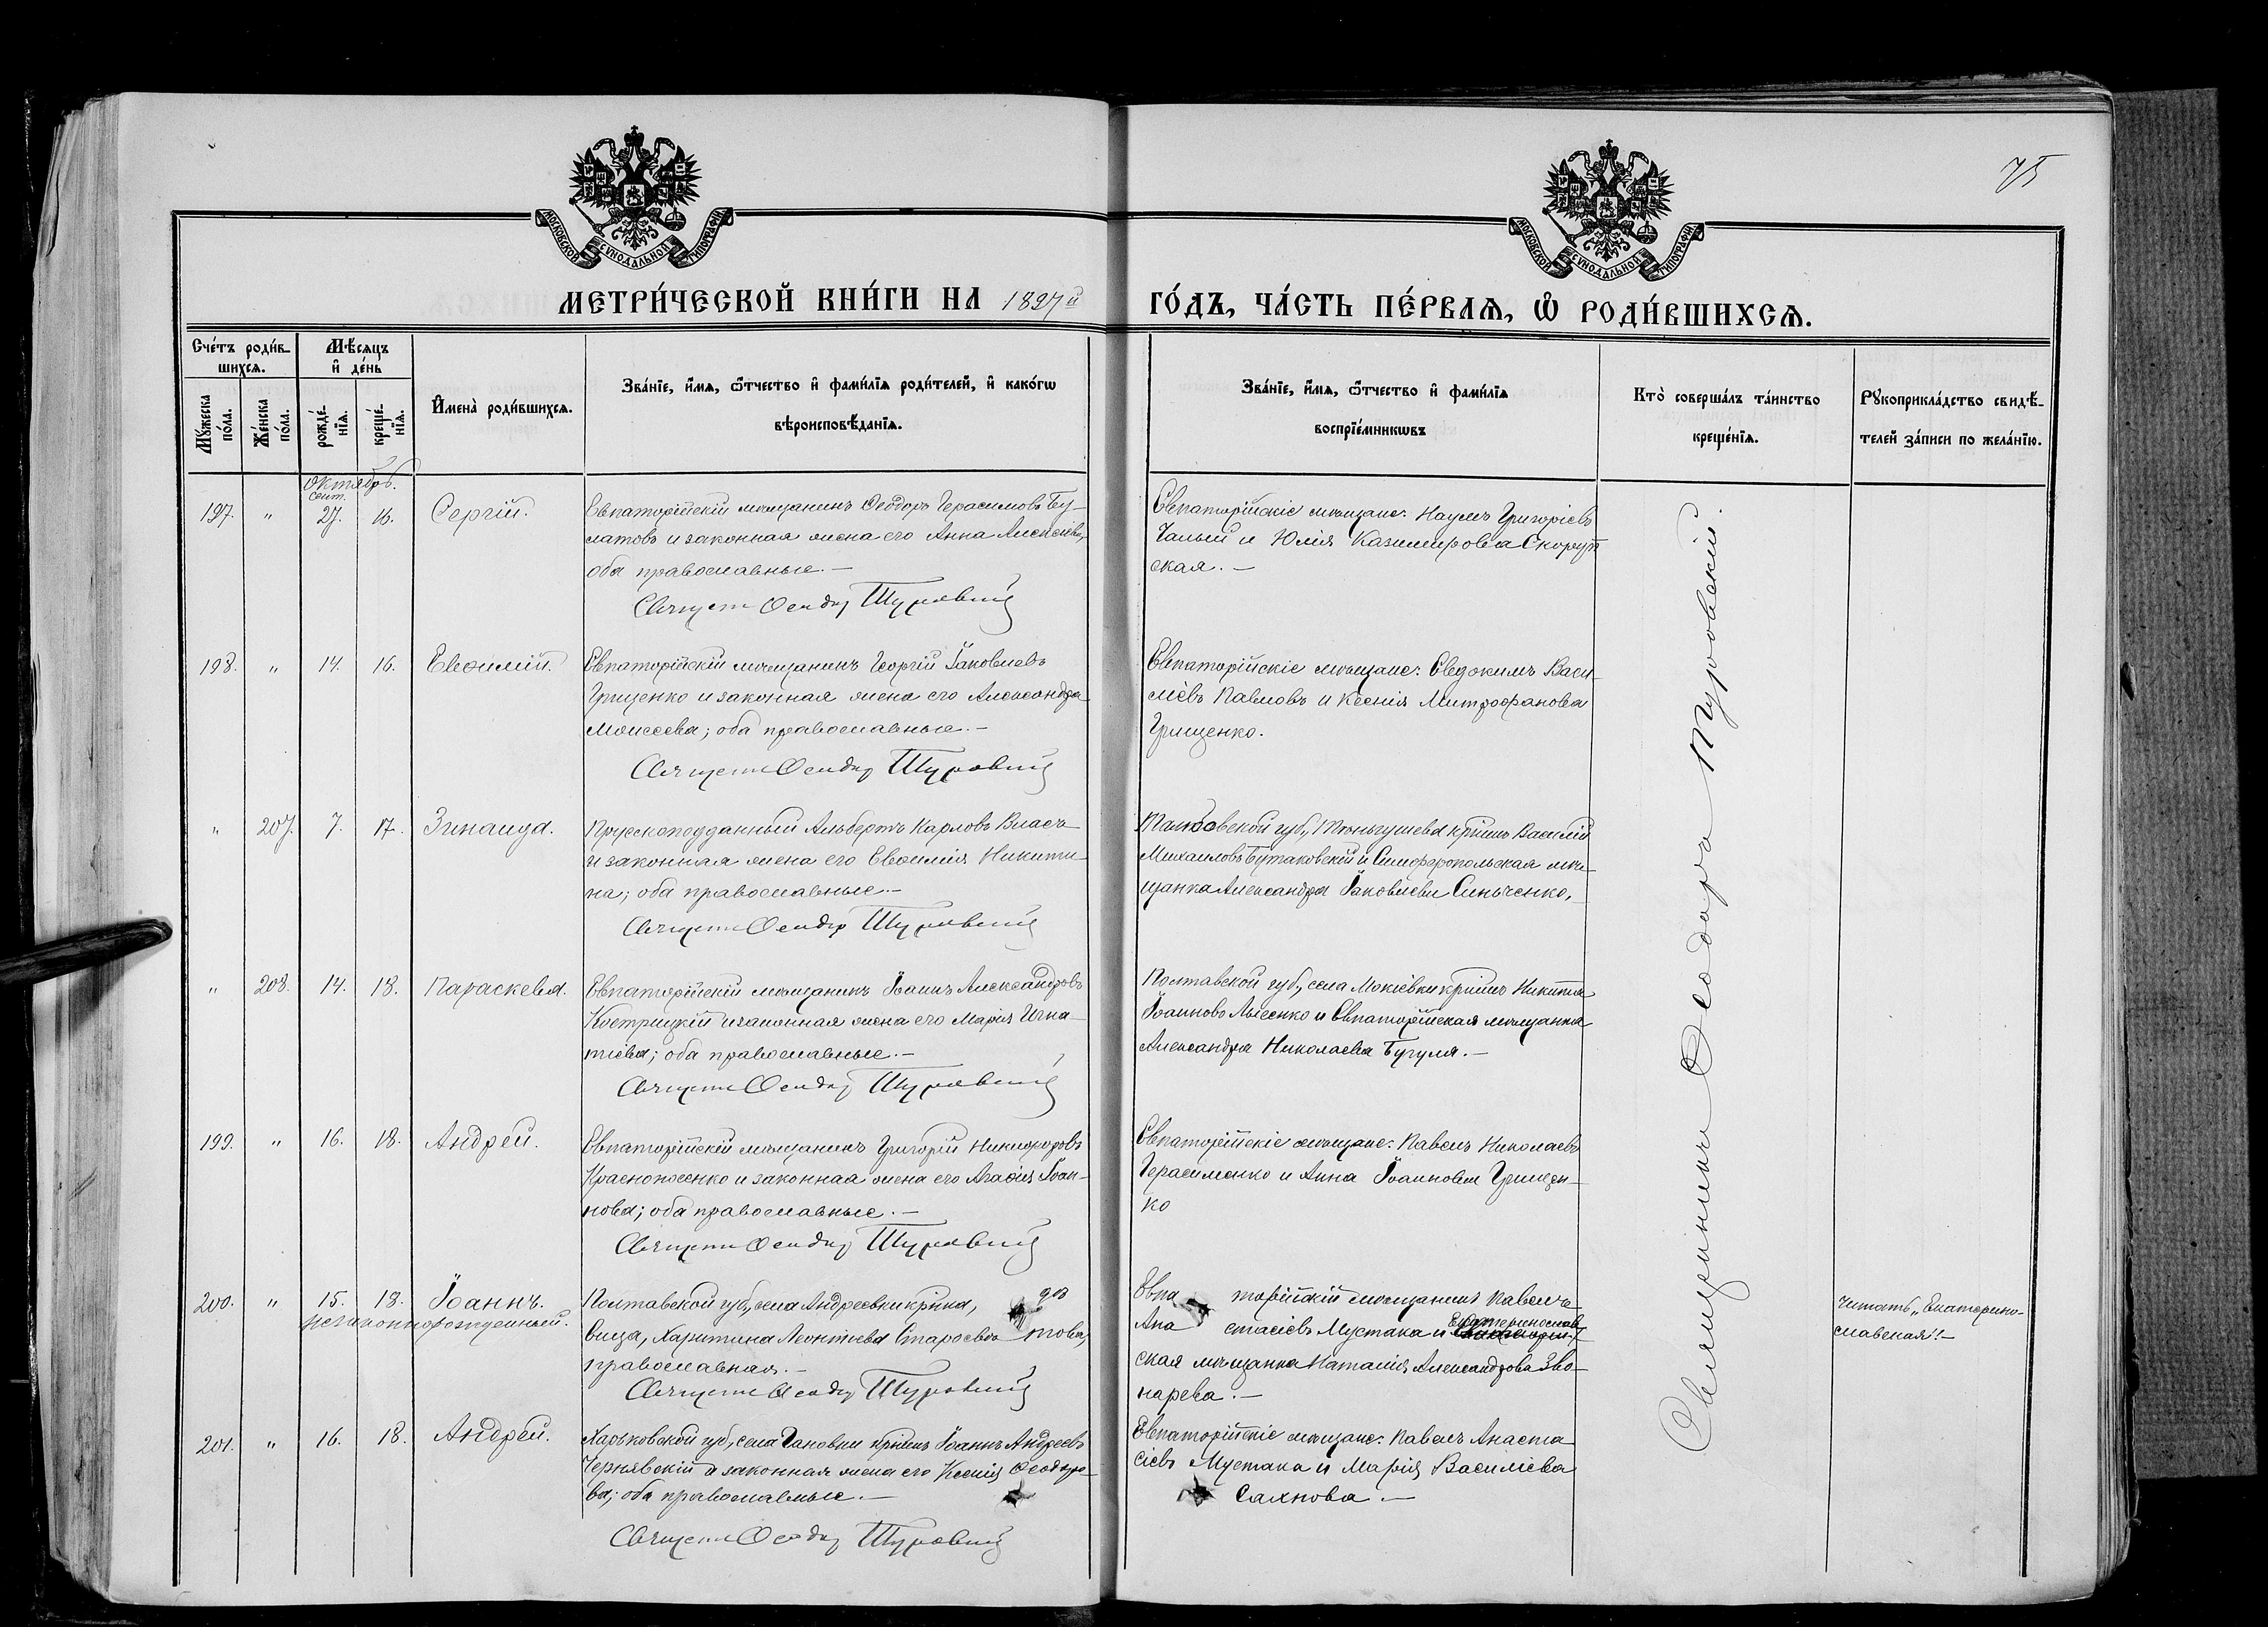 75
МОСКОВСКОЙ СѴНОДАЛЬНОЙ ТИПОГРАФІИ
МОСКОВСКОЙ СѴНОДАЛЬНОЙ ТИПОГРАФІИ
МЕТРИ́ЧЕСКОЙ КНИ́ГИ НА 1897й ГО́ДЪ, ЧА́СТЬ ПЕ́РВАѦ, Ѡ҆ РОДИ́ВШИХСѦ.
Сче́тъ роди́в-
шихсѧ.
Мꙋ́жеска по́ла.
Же́нска по́ла.
Мѣ́сѧцъ
и҆ де́нь
рожде́-
нїѧ.
креще́-
нїѧ.
И҆мена̀ роди́вшихсѧ.
Зва́нїе, и҆́мѧ, ѻ҆́тчество и҆ фами́лїѧ роди́телей, и҆ како́гѡ
вѣроисповѣ́данїѧ.
Зва́нїе, и҆́мѧ, ѻ҆́тчество и҆ фами́лїѧ
воспрїе́мникѡвъ
Кто̀ соверша́лъ та́инство
креще́нїѧ.
Рꙋкоприкла́дство свидѣ́-
телей за́писи по жела́нїю.
Октябрь.
сент.
197. " 27. 16. Сергій.
Евпаторійскій мѣщанинъ Ѳеодоръ Герасимовъ Бу-
латовъ и законная жена его Анна Алексіева,
оба православные.-
Священ Ѳеодор Туровскій
Евпаторійскіе мѣщане: Наумъ Григоріевъ
Чалый и Юлія Казимирова Скоруп
ская.-
198. " 14. 16. Евѳимій.
Евпаторійскій мѣщанинъ Георгій Іаковлевъ
Грищенко и законная жена его Александра
Моисеева; оба православные.-
Священ Ѳеодор Туровскій
Евпаторійскіе мѣщане: Евдокимъ Васи-
ліевъ Павловъ и Ксенія Митрофанова
Грищенко.
" 207. 7. 17. Зинаида.
Прусскоподданный Альбертъ Карловъ Власъ
и законная жена его Евѳимія Никити-
на; оба православные.-
Священ Ѳеодор Туровскій
губ. крнинъ Василій
Михаиловъ Бутаковскій и Симферопольская мѣ-
щанка Александра Іаковлева Синьченко.
" 208. 14. 18. Параскева.
Евпаторійскій мѣщанинъ Іоаннъ Александровъ
Кострицкій и законная жена его Марія Игна-
тіева; оба православные.-
Священ Ѳеодор Туровскій
Полтавской губ., села Мокіевки крнинъ Никита
Іоанновъ Лысенко и Евпаторійская мѣщанка
Александра Николаева Бугуля.-
199. " 16. 18. Андрей.
Евпаторійскій мѣщанинъ Григорій Никифоровъ
Красноносенко и законная жена его Агаѳія Іоан-
нова; оба православные.-
Священ Ѳеодор Туровскій
Евпаторійскіе мѣщане: Павелъ Николаевъ
Герасименко и Анна Іоаннова Грищен-
ко
200. " 15. 18. Іоаннъ.
незаконнорожденный.
Полтавской губ., села Андреевки крнка, дѣ
вица, Харитина Леонтіева Староевтова,
православная.-
Священ Ѳеодор Туровскій
Евпаторійскій мѣщанинъ Павелъ
Анастасіевъ Мустака и Екатеринослав
ская мѣщанка Наталія Александрова Зво-
нарева.-
Читать „Екатерино-
славская".-
201. " 16. 18. Андрей.
Харьковской губ., села Гановки крнинъ Іоаннъ Андреевъ
Чернявскій и законная жена его Ксенія Ѳеодоро-
ва; оба православные.-
Священ Ѳеодор Туровскій
Евпаторійскіе мѣщане: Павелъ Анаста
сіевъ Мустака и Марія Василіева
Сахнова.-
Священникъ Ѳеодоръ Туровскій.